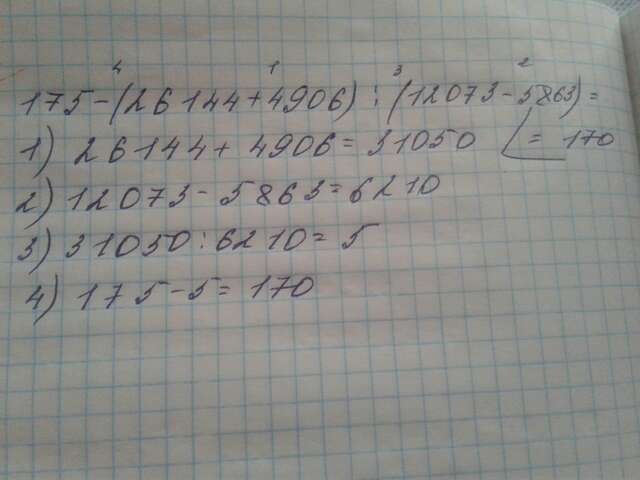 4 1 3 2
175-(26144+4906):(12073-5863)=
1) 26144+4906=31050 = 170
2) 12073-5863=6210
3) 31050:6210=5
4) 175-5=170